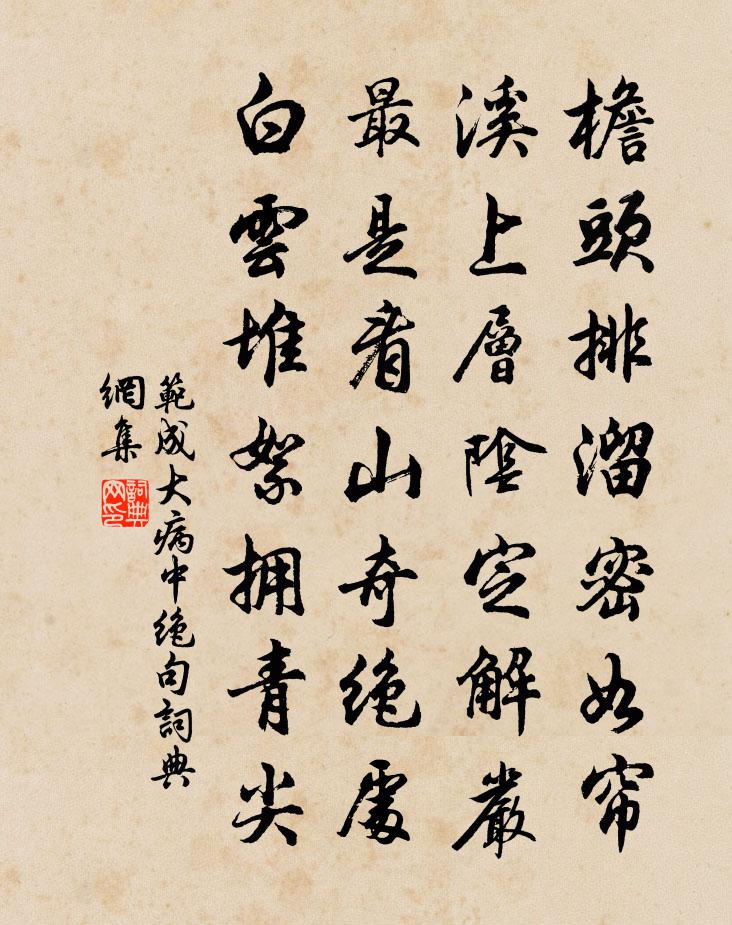 檐頭排溜密如帘
溪上層陰定解嚴
最是看山奇绝處
白雲堆絮拥青尖
範成大病中绝句詞典
網集
詞典網印